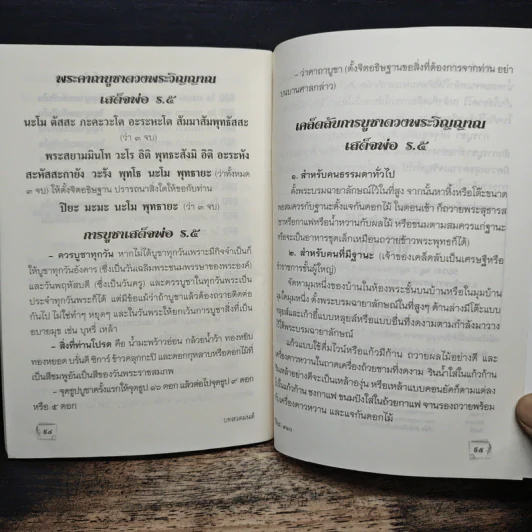 พระคาถาบูชาดวงพระวิญญาณ
เสด็จพ่อ ร.๕
นะโม ตัสสะ ภะคะวะโต อะระหะโต สัมมาสัมพุทธัสสะ
(ว่า ๓ จบ)
พระสยามมินโท วะโร อิติ พุทธะสังมิ อิติ อะระหัง
สะหัสสะกายัง วะรัง พุทโธ นะโม พุทธายะ (ว่าทั้งหมด
๓ จบ) ให้ตั้งจิตอธิษฐาน ปรารถนาสิ่งใดให้ขอกับท่าน
ปิยะ มะมะ นะโม พุทธายะ (ว่า ๓ จบ)
การบูชาเสด็จพ่อ ร.๕
- ควรบูชาทุกวัน หากไม่ได้บูชาทุกวันเพราะมีกิจจำเป็นก็
ให้บูชาทุกวันอังคาร (ซึ่งเป็นวันเฉลิมพระชนมพรรษาของพระองค์)
และวันพฤหัสบดี (ซึ่งเป็นวันครู) และควรบูชาในทุกวันพระเป็น
ประจำทุกวันพระก็ได้ แต่มีข้อแม้ว่าถ้าบูชาแล้วต้องถวายติดต่อ
กันไป ไม่ใช่ทำๆ หยุดๆ และในวันพระให้ยกเว้นการบูชาสิ่งที่เป็น
อบายมุข เช่น บุหรี่ เหล้า
- สิ่งที่ท่านโปรด คือ น้ำมะพร้าวอ่อน กล้วยน้ำว้า ทองหยิบ
ทองหยอด บรั่นดี ซิการ์ ข้าวคลุกกะปิ และดอกกุหลาบหรือดอกไม้ที่
เป็นสีชมพูอันเป็นสีของวันพระราชสมภพ
- จุดธูปบูชาครั้งแรกให้จุดธูป ๑๖ ดอก แล้วต่อไปจุดธูป ๙ ดอก
หรือ ๕ ดอก
๕๔
บทสวดมนต์
- ว่าคาถาบูชา (ตั้งจิตอธิษฐานขอสิ่งที่ต้องการจากท่าน อย่า
บนบานศาลกล่าว)
เคล็ดลับการบูชาดวงพระวิญญาณ
เสด็จพ่อ ร.๕
๑. สำหรับคนธรรมดาทั่วไป
ตั้งพระบรมฉายาลักษณ์ไว้ในที่สูง จากนั้นหาหิ้งหรือโต๊ะขนาด
พอสมควรกับฐานะตั้งแจกันดอกไม้ ในตอนเช้า ก็ถวายพระสุธารส
ชาหรือกาแฟหรือน้ำหวานกับผลไม้ หรือขนมตามสมควรแก่ฐานะ
หรือจะเป็นอาหารชุดเล็กเหมือนถวายข้าวพระพุทธก็ได้)
๒. สำหรับคนที่มีฐานะ (เจ้าของเคล็ดลับเป็นเศรษฐีหรือ
ข้าราชการชั้นผู้ใหญ่)
จัดหามุมหนึ่งของบ้านในห้องพระชั้นบนบ้านหรือในมุมบ้าน
มุมใดมุมหนึ่ง ตั้งพระบรมฉายาลักษณ์ในที่สูงๆ ด้านล่างมีโต๊ะแบบ
หลุยส์และเก้าอี้แบบหลุยส์หรือแบบอื่นที่งดงามตามกำลังมาวาง
ไว้ใต้พระบรมฉายาลักษณ์
แก้วแบบใช้ดื่มไวน์หรือแก้วมีก้าน ถวายผลไม้อย่างดี และ
เครื่องคาวหวานในถาดเครื่องถ้วยชามที่งดงาม รินน้ำใส่ในแก้วก้าน
เหล้าอย่างดีจะเป็นเหล้าองุ่น หรือเหล้าแบบคอนยัคก็ตามแต่ลง
ในแก้วก้าน ชงกาแฟ ขนมปังใส่ในถ้วยกาแฟ จานรองถวายพร้อม
เครื่องคาวหวาน และแจกันดอกไม้
๕๕